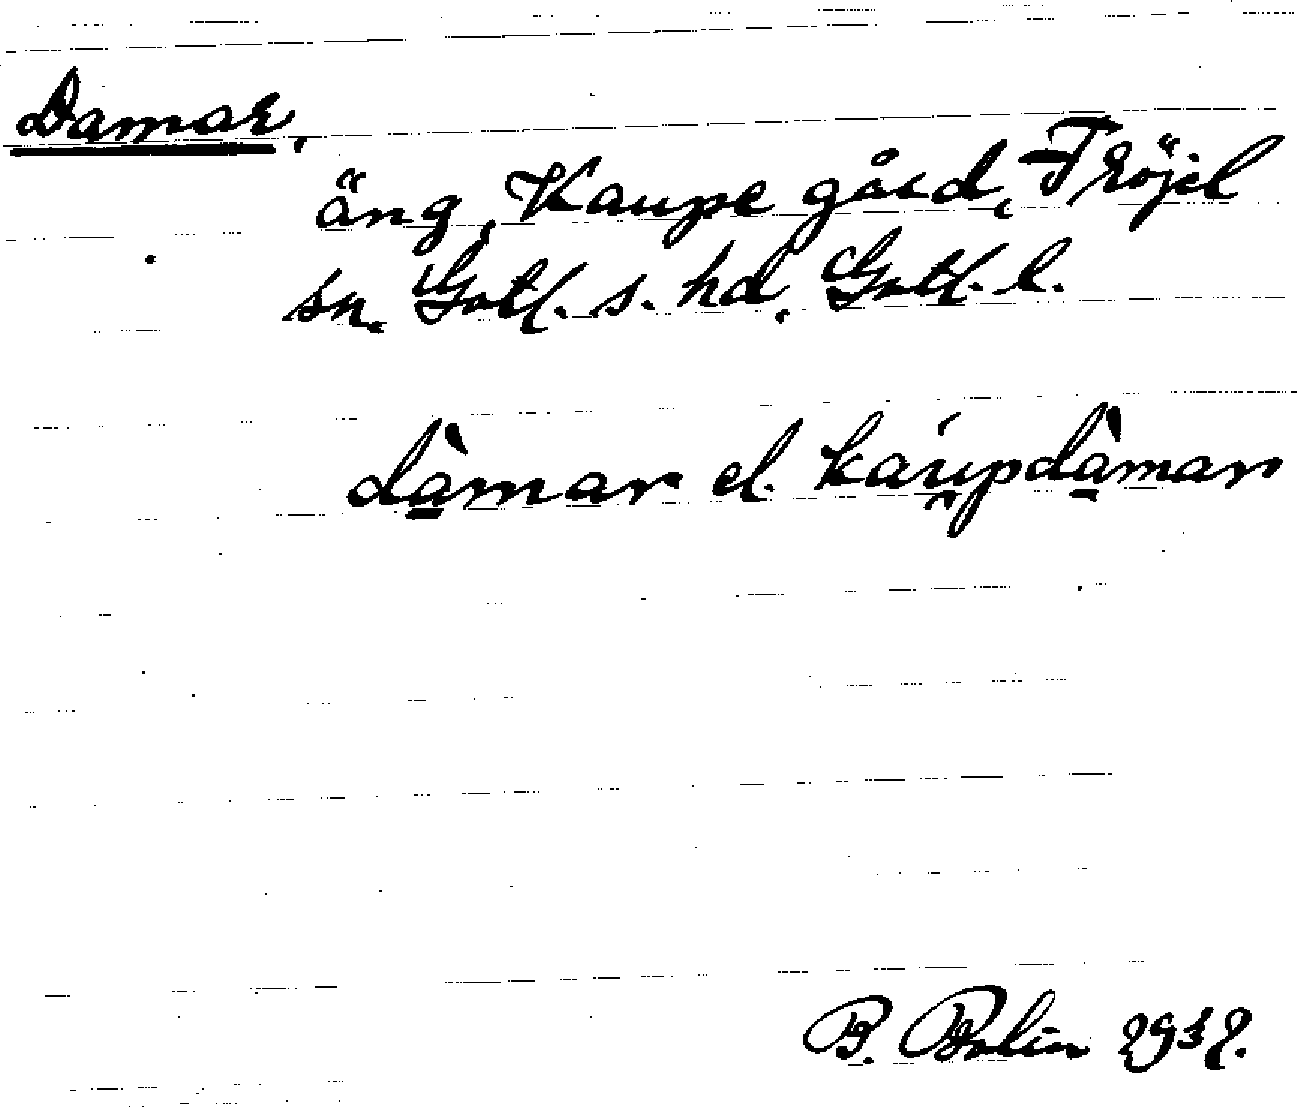 Damar,
äng, Kaupe gård, Fröjel
sn. Gotl. s. hd, Gotl. l.
dà̱mar el. kaúpdà̱mar
B. Bolin 1937.